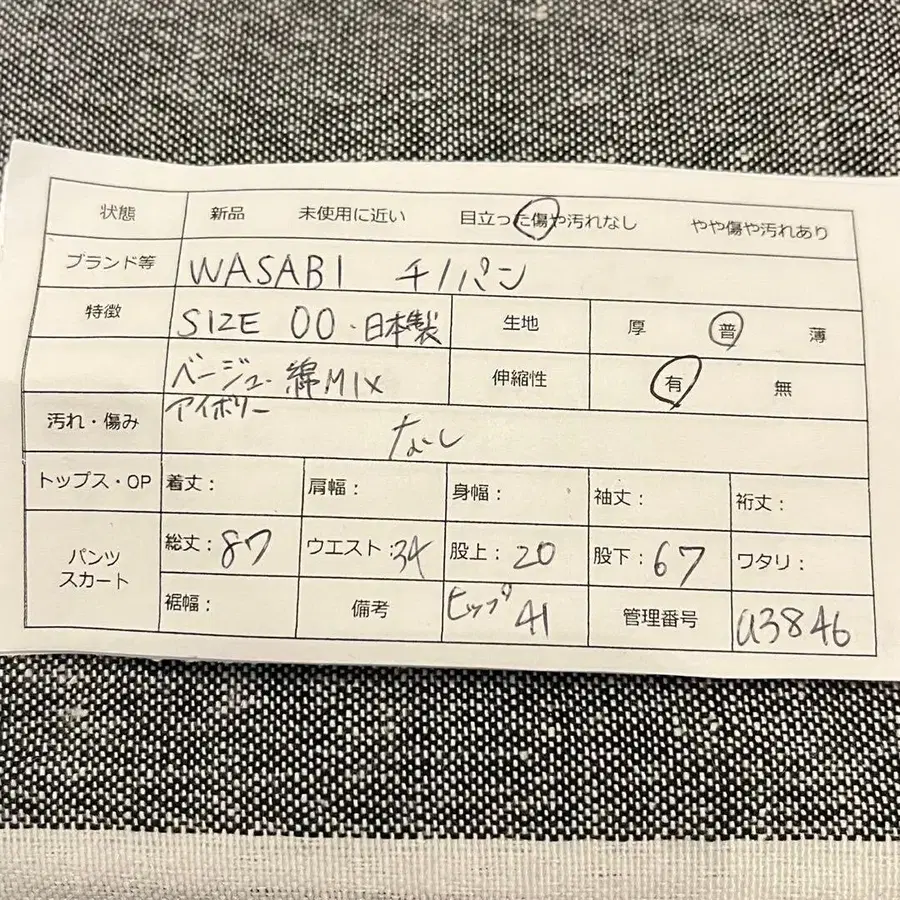 状態 新品 未使用に近い 目立った傷や汚れなし やや傷や汚れあり
ブランド等 WASABI チノパン
特徴 SIZE 00・日本製 生地 厚 普 薄
ベージュ 綿MIX 伸縮性 有 無
アイボリー
汚れ・傷み なし
トップス・OP 着丈: 肩幅: 身幅: 袖丈: 裄丈:
パンツ スカート 総丈:87 ウエスト:34 股上:20 股下:67 ワタリ:
裾幅: 備考 ヒップ 41 管理番号 U3846